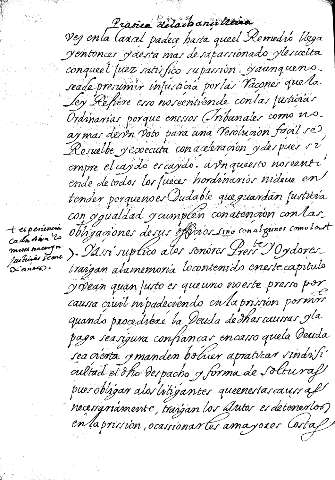 Pratica de la
vez en la carzel padece hasta que el Remedio llega
y entonces ya esta mas desapassionado y lesuelta
con que el juez satisfizo su passion, y aunque no
sea de presumir injusticia por las raçones que la
Ley Refiere esso no se entiende con las Justicias
Ordinarias porque en essos Tribunales como no
ay mas de Un Voto para una resolucion facil se
Resuelbe y executa con aceleracion y despues si
empre el caydo es caydo. aunque esto no se enti
ende de todos los jueces hordinarios ni deve en
tender porque no es Dudable que guardan justicia
con ygualdad y cumplen con atencion con las
obligaciones de sus officios sino con algunos como las
+ experiencia
Y assi suplico a los señores Press.te Y Oydores
traigan a la memoria lo contenido en este capitulo
y vean quan justo es que uno no este preso por
causa civil ni padeciendo en la prission por mrs
quando procediere la Deuda de dhas causas y la
paga sea sigura confianças en caso que la Deuda
sea cierta y manden bolver a pratizar sin difi
cultad el dho despacho y forma de solturas
pues obligar a los litigantes que en estas caussas
necessariamente, traigan los Autos es detenerlos
en la prission, ocasionarles a mayores Costas